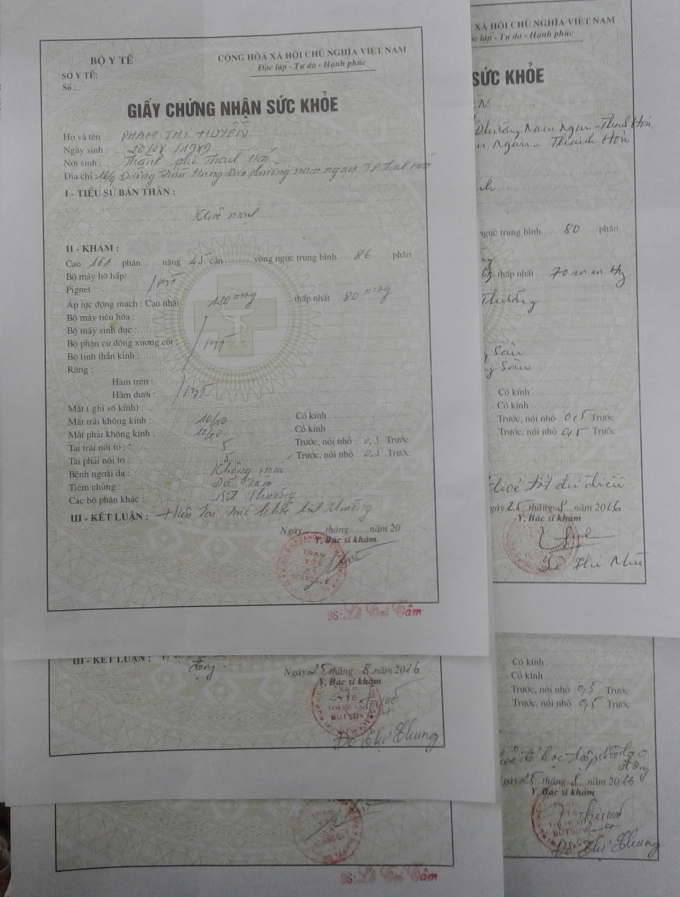 BỘ Y TẾ
SỞ Y TẾ:
Số :
CỘNG HÒA XÃ HỘI CHỦ NGHĨA VIỆT NAM
Độc lập - Tự do - Hạnh phúc
GIẤY CHỨNG NHẬN SỨC KHỎE
Họ và tên : PHẠM THỊ HUYỀN
Ngày sinh : 20/08/1989
Nơi sinh : Thành phố Thanh Hóa
Địa chỉ : Đường Trần Hưng Đạo phường nam ngạn TP Thanh Hóa
I - TIỂU SỬ BẢN THÂN :
Khỏe mạnh
II - KHÁM :
Cao 161 phân nặng 45 cân vòng ngực trung bình 86 phân
Bộ máy hô hấp:
Pignet :
Áp lực động mạch : Cao nhất 120 mmHg thấp nhất 80 mmHg
Bộ máy tiêu hóa :
Bộ máy sinh dục :
Bộ phận cử động xương cốt :
Bộ tinh thần kinh :
Răng :
Hàm trên :
Hàm dưới :
Mắt ( ghi số kính) :
Mắt trái không kính : 10/10 Có kính
Mắt phải không kính : 10/10 Có kính
Tai trái nói to : 5 Trước, nói nhỏ 0,5 Trước
Tai phải nói to : 5 Trước, nói nhỏ 0,5 Trước
Bệnh ngoài da : Không mắc
Tiêm chủng : Đã tiêm
Các bộ phận khác : Bất thường
III - KẾT LUẬN : Hiện tại bình thường
Ngày tháng năm 20
Y, Bác sĩ khám
TRẠM
Y TẾ
BS: Lê Tâm
XÃ HỘI CHỦ NGHĨA VIỆT NAM
lập - Tự do - Hạnh phúc
SỨC KHỎE
Phường Nam Ngạn - Thanh Hóa
Ngạn - Thanh Hóa
ngực trung bình 80 phân
thấp nhất 70 mmHg
thường
Có kính
Có kính
Trước, nói nhỏ 0,5 Trước
Trước, nói nhỏ 0,5 Trước
khoẻ tốt đủ điều
ngày 21 tháng 8 năm 2016
Y, Bác sĩ khám
III - KẾT LUẬN :
động
Ngày 25 tháng 8 năm 2016
Y, Bác sĩ khám
Đỗ Thị Chung
BS: Lê Tâm
Có kính
Có kính
Trước, nói nhỏ 0,5 Trước
Trước, nói nhỏ 0,5 Trước
để học tập lao
động
ngày 25 tháng 8 năm 2016
Y, Bác sĩ khám
Đỗ Thị Chung